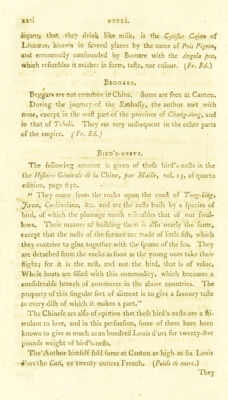 xxvi NOTES.
liquor, that they drink like milk, is the Cytisus Cajan of
Linnæus, known in several places by the name of Pois Pigeon,
and erroneously confounded by Bomare with the Angola pea,
which resembles it neither in form, taste, nor colour. (Fr. Ed.)
BEGGARS.
Beggars are not common in China. Some are seen at Canton.
During the journey of the Embassy, the author met with
none, except in the west part of the province of Chang-tong, and
in that of Tcheli. They are very unfrequent in the other parts
of the empire. (Fr. Ed.)
BIRD'S-NESTS.
The following account is given of these bird's-nests in the
the Histoire Générale de la Chine, par Maille, vol. 13, of quarto
edition, page 650.
" They come from the rocks upon the coast of Tong-king,
Java, Cochinchina, &c. and are the nests built by a species of
bird, of which the plumage much resembles that of our swal-
lows. Their manner of building them is also nearly the same,
except that the nests of the former are made of little fish, which
they contrive to glue together with the spume of the sea. They
are detached from the rocks as soon as the young ones take their
flight; for it is the nest, and not the bird, that is of value.
Whole boats are filled with this commodity, which becomes a
considerable branch of commerce in the above countries. The
property of this singular sort of aliment is to give a savoury taste
to every dish of which it makes a part."
The Chinese are also of opinion that these bird's-nests are a sti-
mulant to love, and in this persuasion, some of them have been
known to give as much as an hundred Louis d'ors for twenty-five
pounds weight of bird's-nests.
The Author himself sold some at Canton as high as six Louis
d'ors the Cati, or twenty ounces French. (Poids de marc.)
They